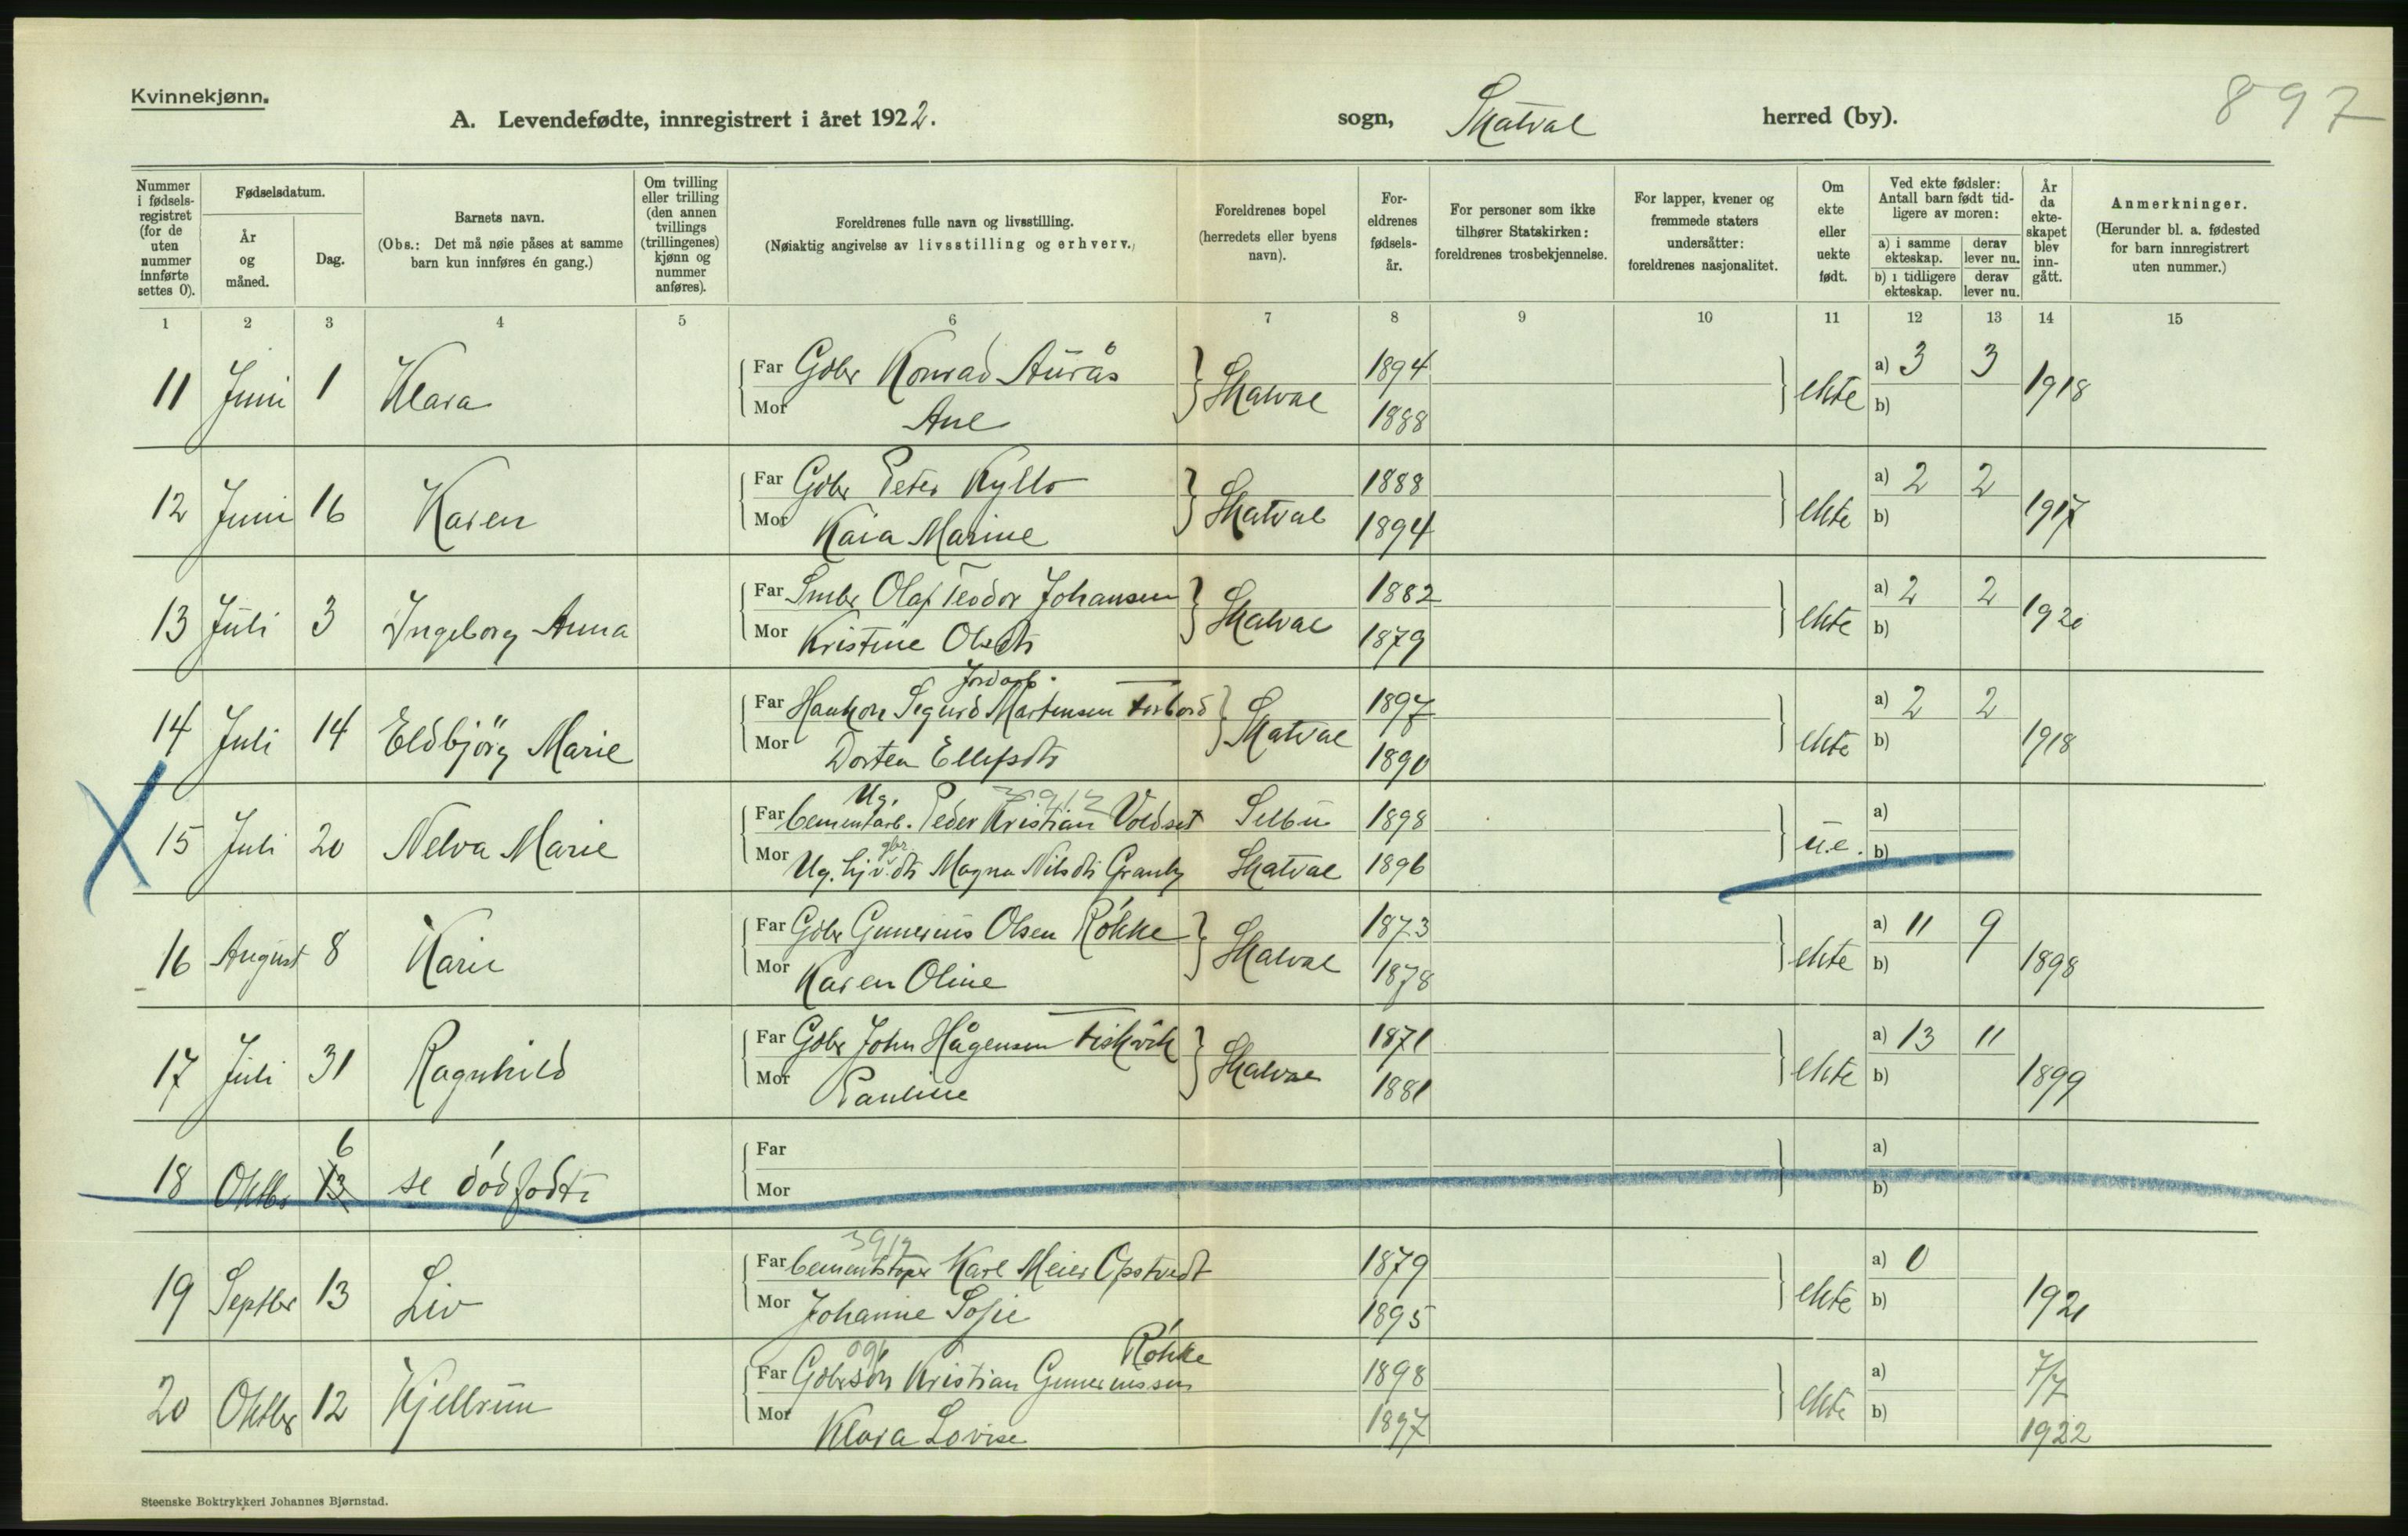 Kvinnekjønn.
A. Levendefødte, innregistrert i året 1922. sogn, Skatval herred (by). 897
Nummer i fødselsregistret (for de uten nummer innførte settes 0).
Fødselsdatum.
År og måned.
Dag.
Barnets navn.
(Obs.: Det må nøie påses at samme barn kun innføres én gang.)
Om tvilling eller trilling (den annen tvillings (trillingenes) kjønn og nummer anføres).
Foreldrenes fulle navn og livsstilling.
(Nøiaktig angivelse av livsstilling og erhverv.)
Foreldrenes bopel (herredets eller byens navn).
Foreldrenes fødselsår.
For personer som ikke tilhører Statskirken: foreldrenes trosbekjennelse.
For lapper, kvener og fremmede staters undersåtter: foreldrenes nasjonalitet.
Om ekte eller uekte født.
Ved ekte fødsler: Antall barn født tidligere av moren:
a) i samme ekteskap. derav lever nu.
b) i tidligere ekteskap. derav lever nu.
År da ekteskapet blev inngått.
Anmerkninger.
(Herunder bl. a. fødested for barn innregistrert uten nummer.)
1 2 3 4 5 6 7 8 9 10 11 12 13 14 15
11 Juni 1 Klara Far Gdbr Konrad Aurås Skatval 1894 ekte a) 3 3 1918
Mor Ane 1888 b)
12 Juni 16 Karen Far Gdbr Peter Kyllo Skatval 1888 ekte a) 2 2 1917
Mor Kaia Marine 1894 b)
13 Juli 3 Ingeborg Anna Far Smbr Olaf Teodor Johansen Skatval 1882 ekte a) 2 2 1920
Mor Kristine Olsdtr 1879 b)
Jordarb.
14 Juli 14 Eldbjörg Marie Far Haakon Sigurd Martinsen Forbord Skatval 1897 ekte a) 2 2 1918
Mor Dortea Ellefsdtr 1890 b)
Ug. 3912
15 Juli 20 Nelva Marie Far Cementarb. Peder Kristian Voldset Selbu 1898 u.e. a)
gbr
Mor Ug. hjv. dtr Magna Nilsdtr Granby Skatval 1896 b)
16 August 8 Kari Far Gdbr Gunerius Olsen Røkke Skatval 1873 ekte a) 11 9 1898
Mor Karen Oline 1878 b)
17 Juli 31 Ragnhild Far Gdbr John Hågensen Fiskvik Skatval 1871 ekte a) 13 11 1899
Mor Pauline 1881 b)
6
18 Oktbr 13 se dødfødte Far a)
Mor b)
3912
19 Septbr 13 Liv Far Cementstøper Karl Meier Opstvedt 1879 ekte a) 0 1921
Mor Johanne Sofie 1895 b)
Røkke
20 Oktbr 12 Kjellrun Far Gdbrsøn Kristian Guneriussen 1898 ekte a) 7/7
Mor Klara Lovise 1897 b) 1922
Steenske Boktrykkeri Johannes Bjørnstad.